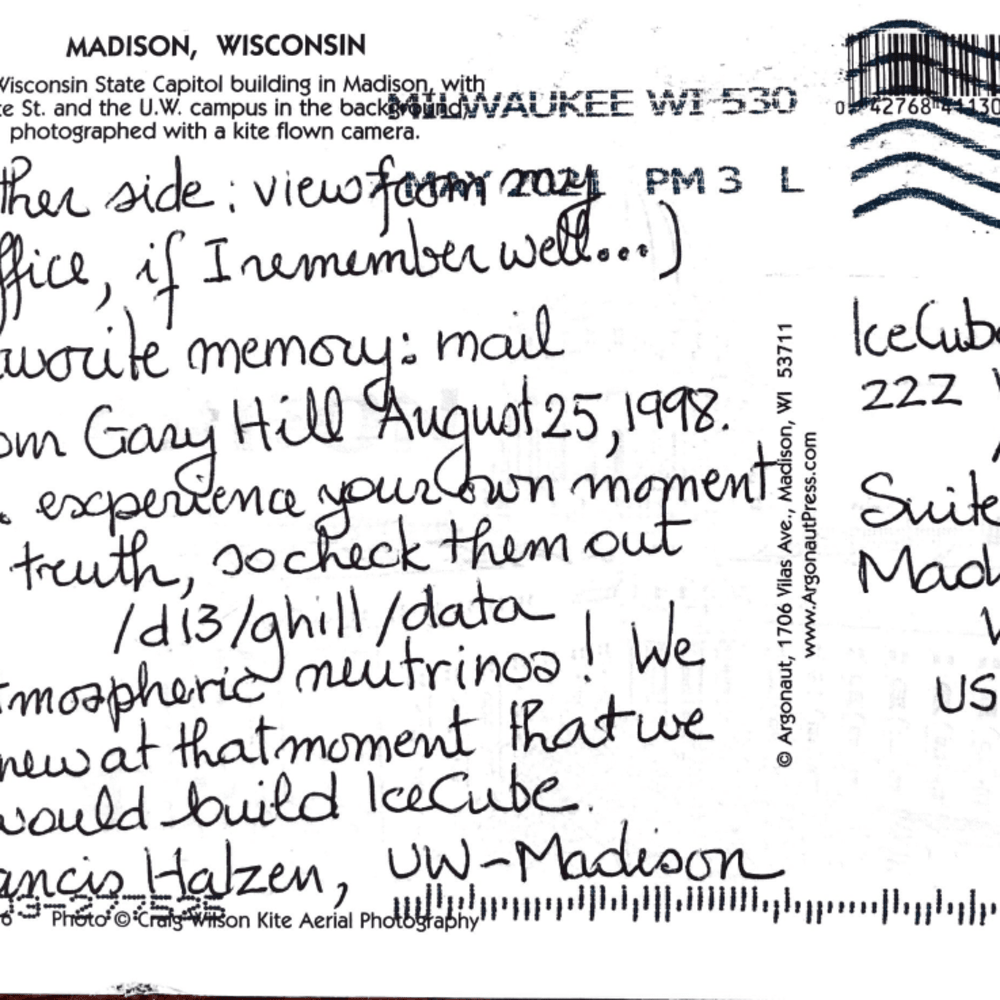 MADISON, WISCONSIN
Wisconsin State Capitol building in Madison, with
te St. and the U.W. campus in the background,
photographed with a kite flown camera.
MILWAUKEE WI 530
MAY 2021 PM 3 L
ther side: view from my
ffice, if I remember well...)
avorite memory: mail
om Gary Hill August 25, 1998.
. experience your own moment
truth, so check them out
/d13/ghill/data
tmospheric neutrinos! We
new at that moment that we
would build IceCube.
ancis Halzen, UW-Madison
Photo © Craig Wilson Kite Aerial Photography
© Argonaut, 1706 Vilas Ave., Madison, WI 53711
www.ArgonautPress.com
IceCube
222 W
Suite
Mad
US